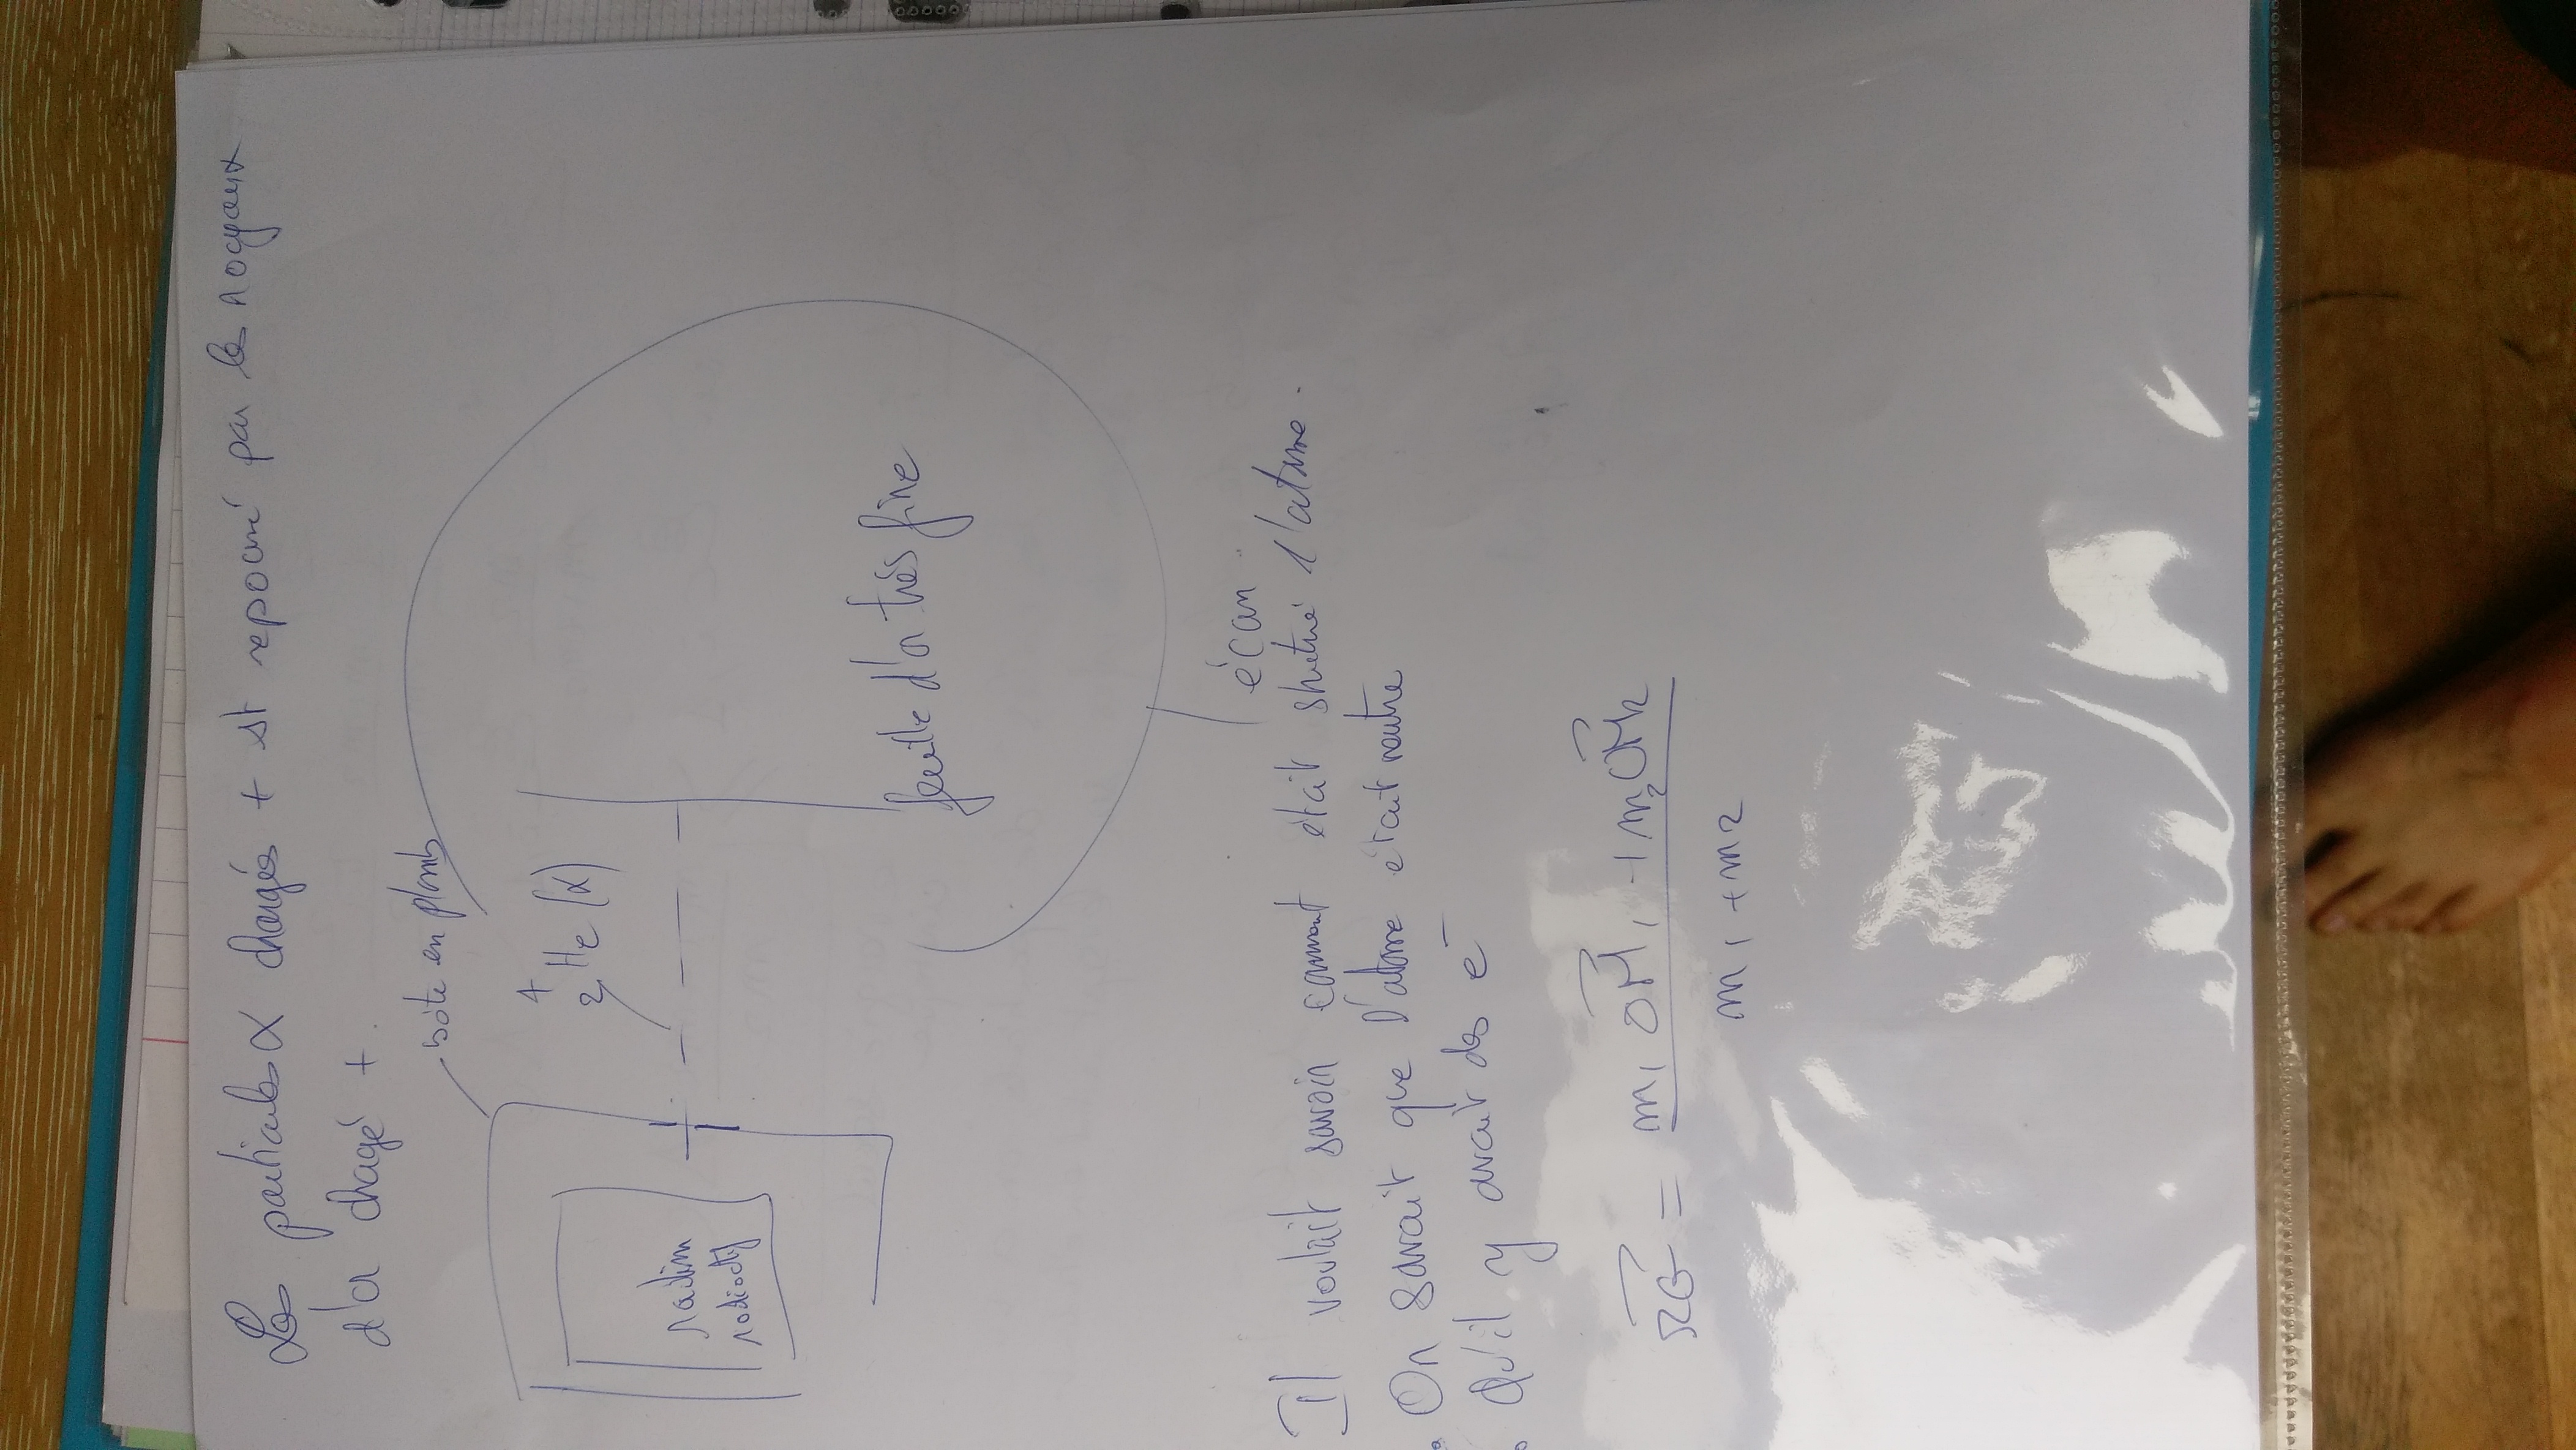 Les particules α chargés + st repoussé par les noyaux
d'or chargé +
boîte en plomb
4
2 He (α)
radium
radioactif
feuille d'or très fine
écran
Il voulait savoir comment était structuré l'atome.
On savait que l'atome était neutre
Qu'il y avait des e⁻
OG = m1 OM1 + m2 OM2
m1 + m2